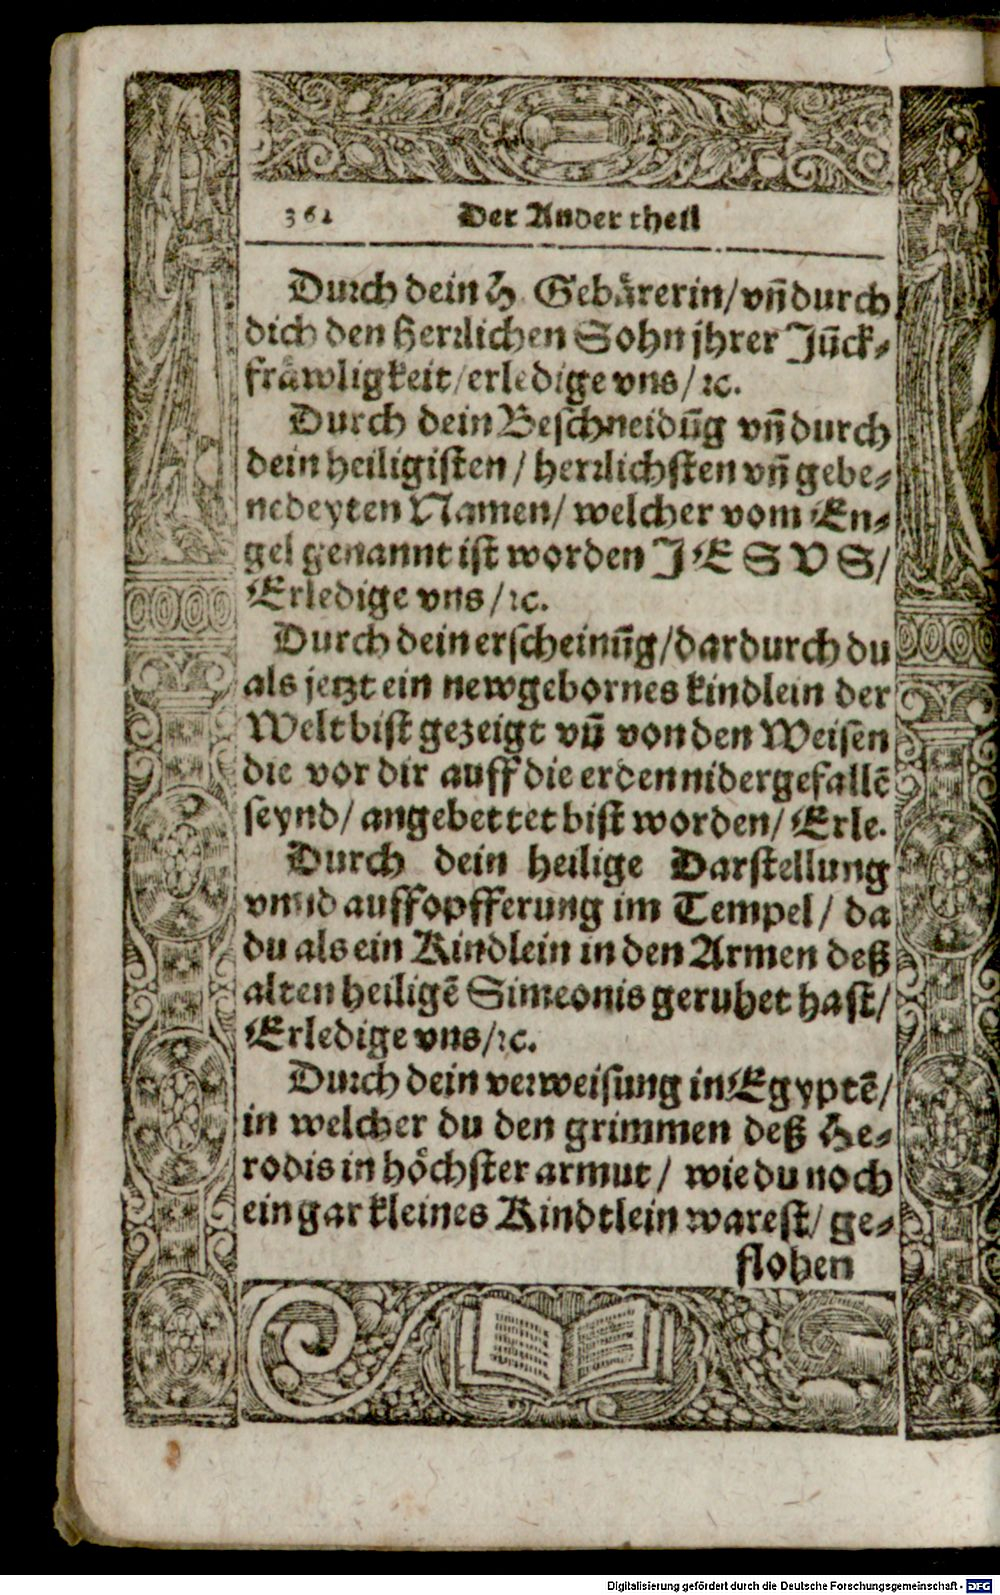 362 Der Ander theil
Durch dein H. Gebärerin/ vñ durch
dich den Herꝛlichen Sohn jhrer Jũck⸗
fräwligkeit/ erledige vns/ ꝛc.
Durch dein Beschneidũg vñ durch
dein heiligisten/ herꝛlichsten vñ gebe⸗
nedeyten Namen/ welcher vom En⸗
gel genannt ist worden JESVS/
Erledige vns/ ꝛc.
Durch dein erscheinũg/ dardurch du
als jetzt ein newgebornes kindlein der
Welt bist gezeigt vñ von den Weisen
die vor dir auff die erden nidergefallẽ
seynd/ angebettet bist worden/ Erle.
Durch dein heilige Darstellung
vnnd auffopfferung im Tempel/ da
du als ein Kindlein in den Armen deß
alten heiligẽ Simeonis geruhet hast/
Erledige vns/ ꝛc.
Durch dein verweisung in Egyptẽ/
in welcher du den grimmen deß He⸗
rodis in höchster armut/ wie du noch
ein gar kleines Kindtlein warest/ ge⸗
flohen
Digitalisierung gefördert durch die Deutsche Forschungsgemeinschaft - DFG